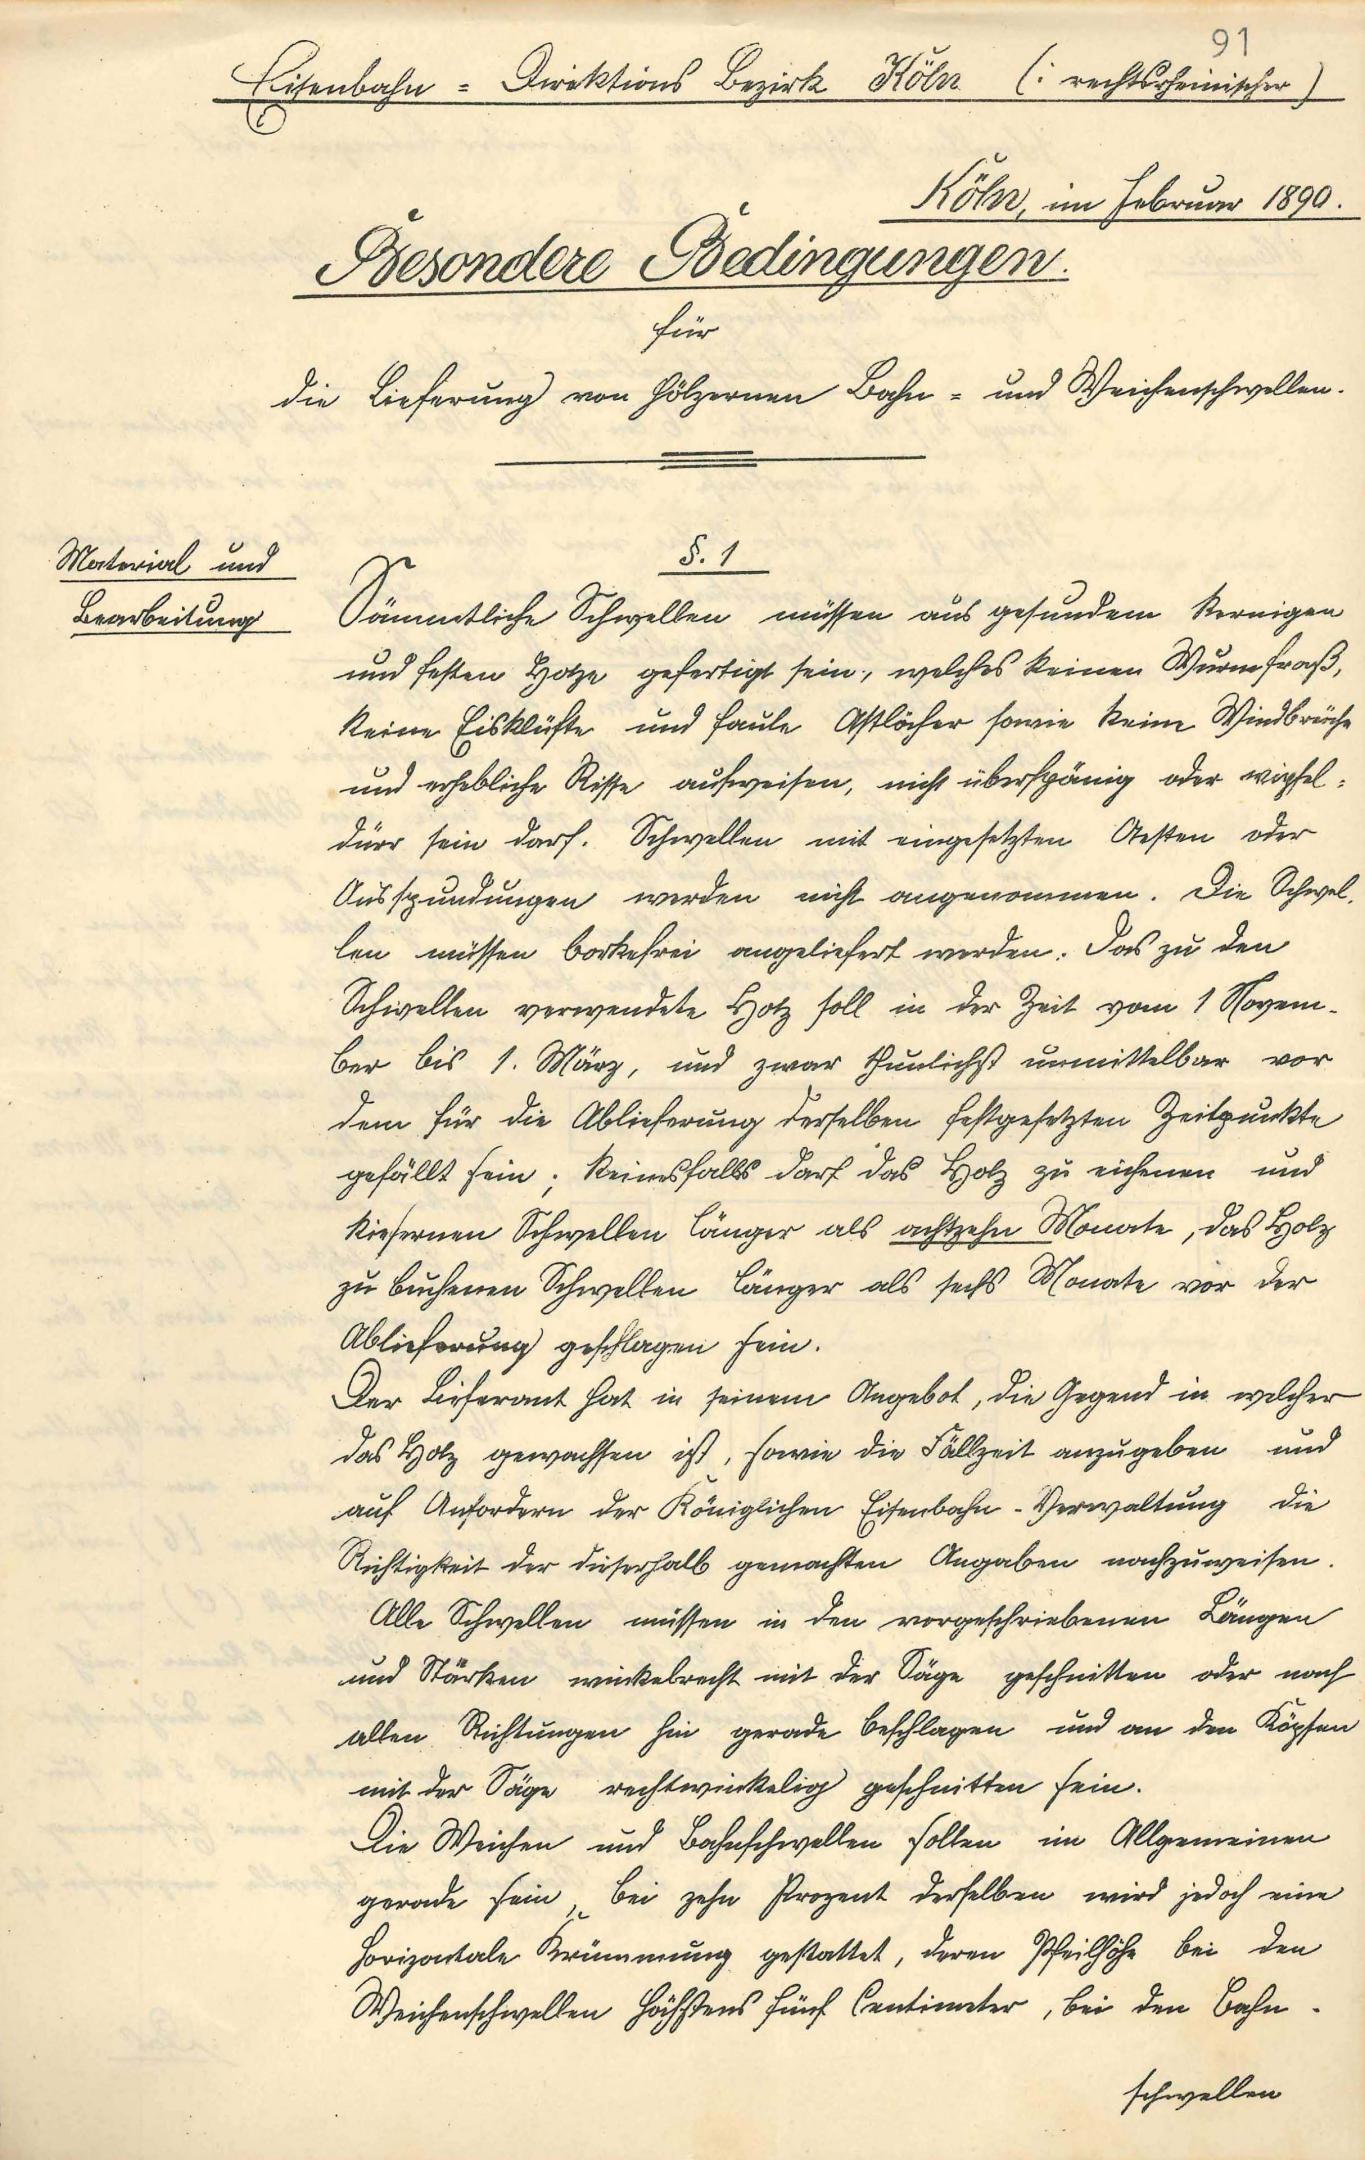 91
Eisenbahn = Direktions Bezirk Köln (: rechtsrheinischer)
Köln, im Februar 1890.
Besondere Bedingungen.
für
die Lieferung von hölzernen Bahn = und Weichenschwellen.
Material und
Bearbeitung
§. 1
Sämmtliche Schwellen müssen aus gesundem kernigen
und festen Holze gefertigt sein, welches keinen Wurmfraß,
keine Eisklüfte und faule Astlöcher sowie keine Windbrüche
und erhebliche Risse aufweisen, nicht überspänig oder wipfel=
dürr sein darf. Schwellen mit eingesetzten Aesten oder
Ausspundungen werden nicht angenommen. Die Schwel.
len müssen borkefrei angeliefert werden. Das zu den
Schwellen verwendete Holz soll in der Zeit vom 1 Novem-
ber bis 1. März, und zwar thunlichst unmittelbar vor
dem für die Ablieferung derselben festgesetzten Zeitpunkte
gefällt sein; keinesfalls darf das Holz zu eichenen und
kiefernen Schwellen länger als achtzehn Monate, das Holz
zu buchenen Schwellen länger als sechs Monate vor der
Ablieferung geschlagen sein.
Der Lieferant hat in seinem Angebot, die Gegend in welcher
das Holz gewachsen ist, sowie die Fällzeit anzugeben und
auf Anfordern der Königlichen Eisenbahn-Verwaltung die
Richtigkeit der dieserhalb gemachten Angaben nachzuweisen.
Alle Schwellen müssen in den vorgeschriebenen Längen
und Stärken winkelrecht mit der Säge geschnitten oder nach
allen Richtungen hin gerade beschlagen und an den Köpfen
mit der Säge rechtwinkelig geschnitten sein.
Die Weichen und Bahnschwellen sollen im Allgemeinen
gerade sein, bei zehn Prozent derselben wird jedoch eine
horizontale Krümmung gestattet, deren Pfeilhöhe bei den
Weichenschwellen höchstens fünf Centimeter, bei den Bahn-
schwellen